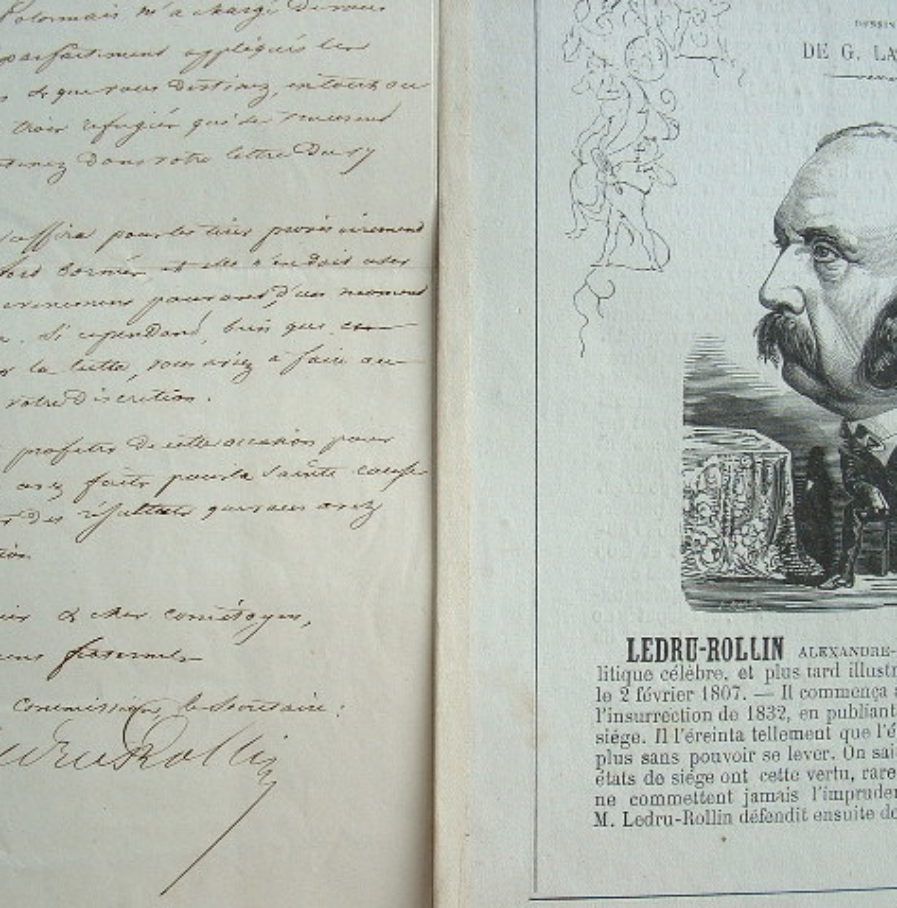 Polonais m'a chargé de vous
parfaitement appliqués les
& que vous destinez, en tout ou
trois réfugiés qui se trouvent
dans votre lettre du 17
pour les tirer provisoirement
fort bornés, et elle n'en doit user
evenemens pourront, d'un moment
Si cependant, bien que
la lutte, vous aviez à faire au
votre discrétion.
profiter de cette occasion pour
avez faits pour la sainte cause
des résultats que vous avez
& cher concitoyen,
fraternels
commission, le Secrétaire :
Ledru Rollin
DESSIN
DE G. LA
LEDRU-ROLLIN ALEXANDRE-
litique célèbre, et plus tard illustr
le 2 février 1807. — Il commença a
l'insurrection de 1832, en publiant
siége. Il l'éreinta tellement que l'é
plus sans pouvoir se lever. On sai
états de siége ont cette vertu, rare
ne commettent jamais l'impruden
M. Ledru-Rollin défendit ensuite de